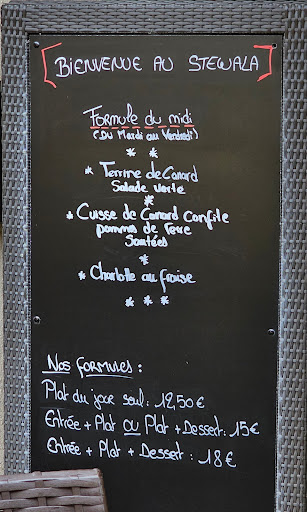 BIENVENUE AU STEWALA
Formule du midi
(Du Mardi au Vendredi)
* *
* Terrine de Canard
Salade verte
*
* Cuisse de Canard Confite
pomme de Terre
Sautées
*
* Charlotte au fraise
* * *
Nos formules :
Plat du jour seul : 12,50 €
Entrée + Plat ou Plat + Dessert : 15 €
Entrée + Plat + Dessert : 18 €